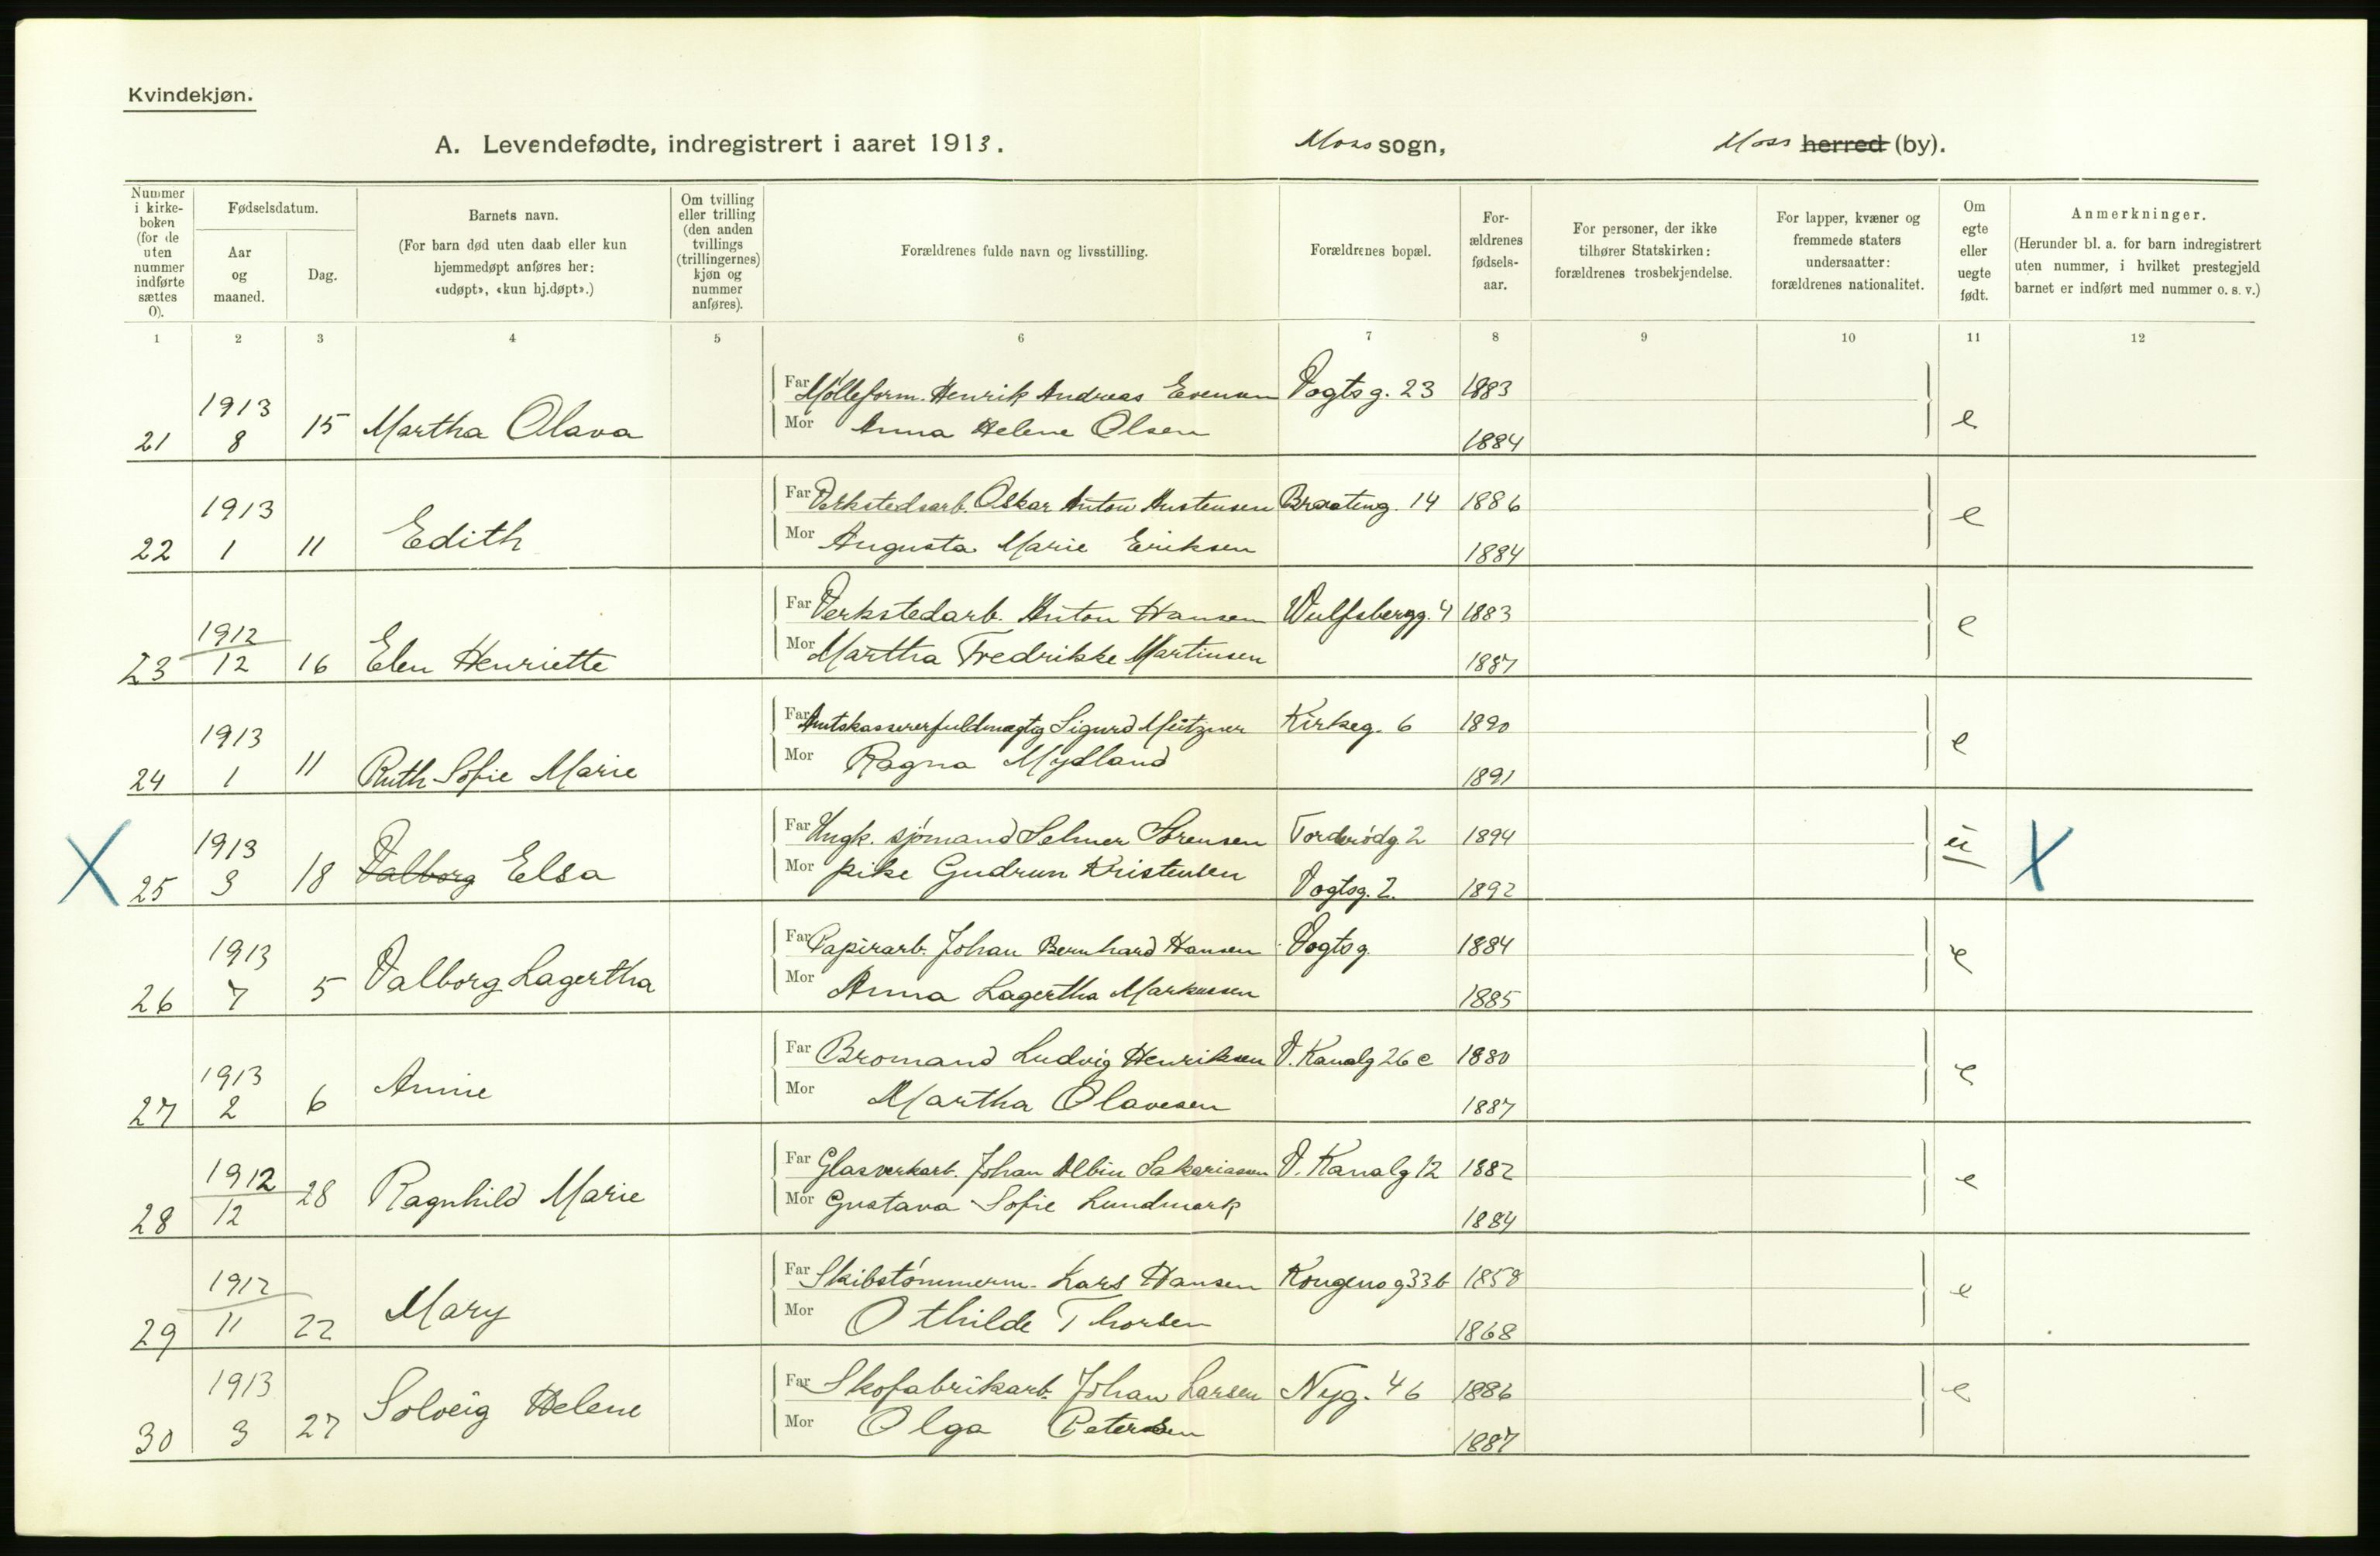 Kvindekjøn.
A. Levendefødte, indregistrert i aaret 1913.
Moss sogn,
Moss herred (by).
Nummer i kirke-boken (for de uten nummer indførte sættes 0).
Fødselsdatum.
Aar og maaned.
Dag.
Barnets navn.
(For barn død uten daab eller kun hjemmedøpt anføres her: «udøpt», «kun hj.døpt».)
Om tvilling eller trilling (den anden tvillings (trillingernes) kjøn og nummer anføres).
Forældrenes fulde navn og livsstilling.
Forældrenes bopæl.
For-ældrenes fødsels-aar.
For personer, der ikke tilhører Statskirken: forældrenes trosbekjendelse.
For lapper, kvæner og fremmede staters undersaatter: forældrenes nationalitet.
Om egte eller uegte født.
Anmerkninger.
(Herunder bl. a. for barn indregistrert uten nummer, i hvilket prestegjeld barnet er indført med nummer o. s. v.)
1 2 3 4 5 6 7 8 9 10 11 12
21 1913 8 15 Martha Olava
Far Mølleform. Henrik Andreas Evensen Vogtsg. 23 1883
Mor Anna Helene Olsen 1884 e
22 1913 1 11 Edith
Far Verkstedsarb. Oskar Anton Austensen Braateng. 14 1886
Mor Augusta Marie Eriksen 1884 e
23 1912 12 16 Elen Henriette
Far Verkstedarb. Anton Hansen Wulfsbergg. 4 1883
Mor Martha Fredrikke Martinsen 1887 e
24 1913 1 11 Ruth Sofie Marie
Far Amtskassererfuldmægtig Sigurd Mützner Kirkeg. 6 1890
Mor Ragna Mydland 1891 e
X 25 1913 3 18 Valborg Elsa
Far Ungk. sjömand Selmer Sörensen Torderödg. 2 1894
Mor pike Gudrun Kristensen Vogtsg. 2. 1892 u X
26 1913 7 5 Valborg Lagertha
Far Papirarb. Johan Bernhard Hansen Vogtsg. 1884
Mor Anna Lagertha Markussen 1885 e
27 1913 2 6 Annie
Far Bromand Ludvig Henriksen V. Kanalg 26 c 1880
Mor Martha Olavesen 1887 e
28 1912 12 28 Ragnhild Marie
Far Glasverkarb. Johan Albin Sakariassen V. Kanalg 12 1882
Mor Gustava Sofie Lundmark 1884 e
29 1912 11 22 Mary
Far Skibstömmerm. Lars Hansen Kongensg 33 b 1858
Mor Othilde Thorsen 1868 e
30 1913 3 27 Solveig Helene
Far Skofabrikarb. Johan Larsen Nyg. 46 1886
Mor Olga Petersen 1887 e